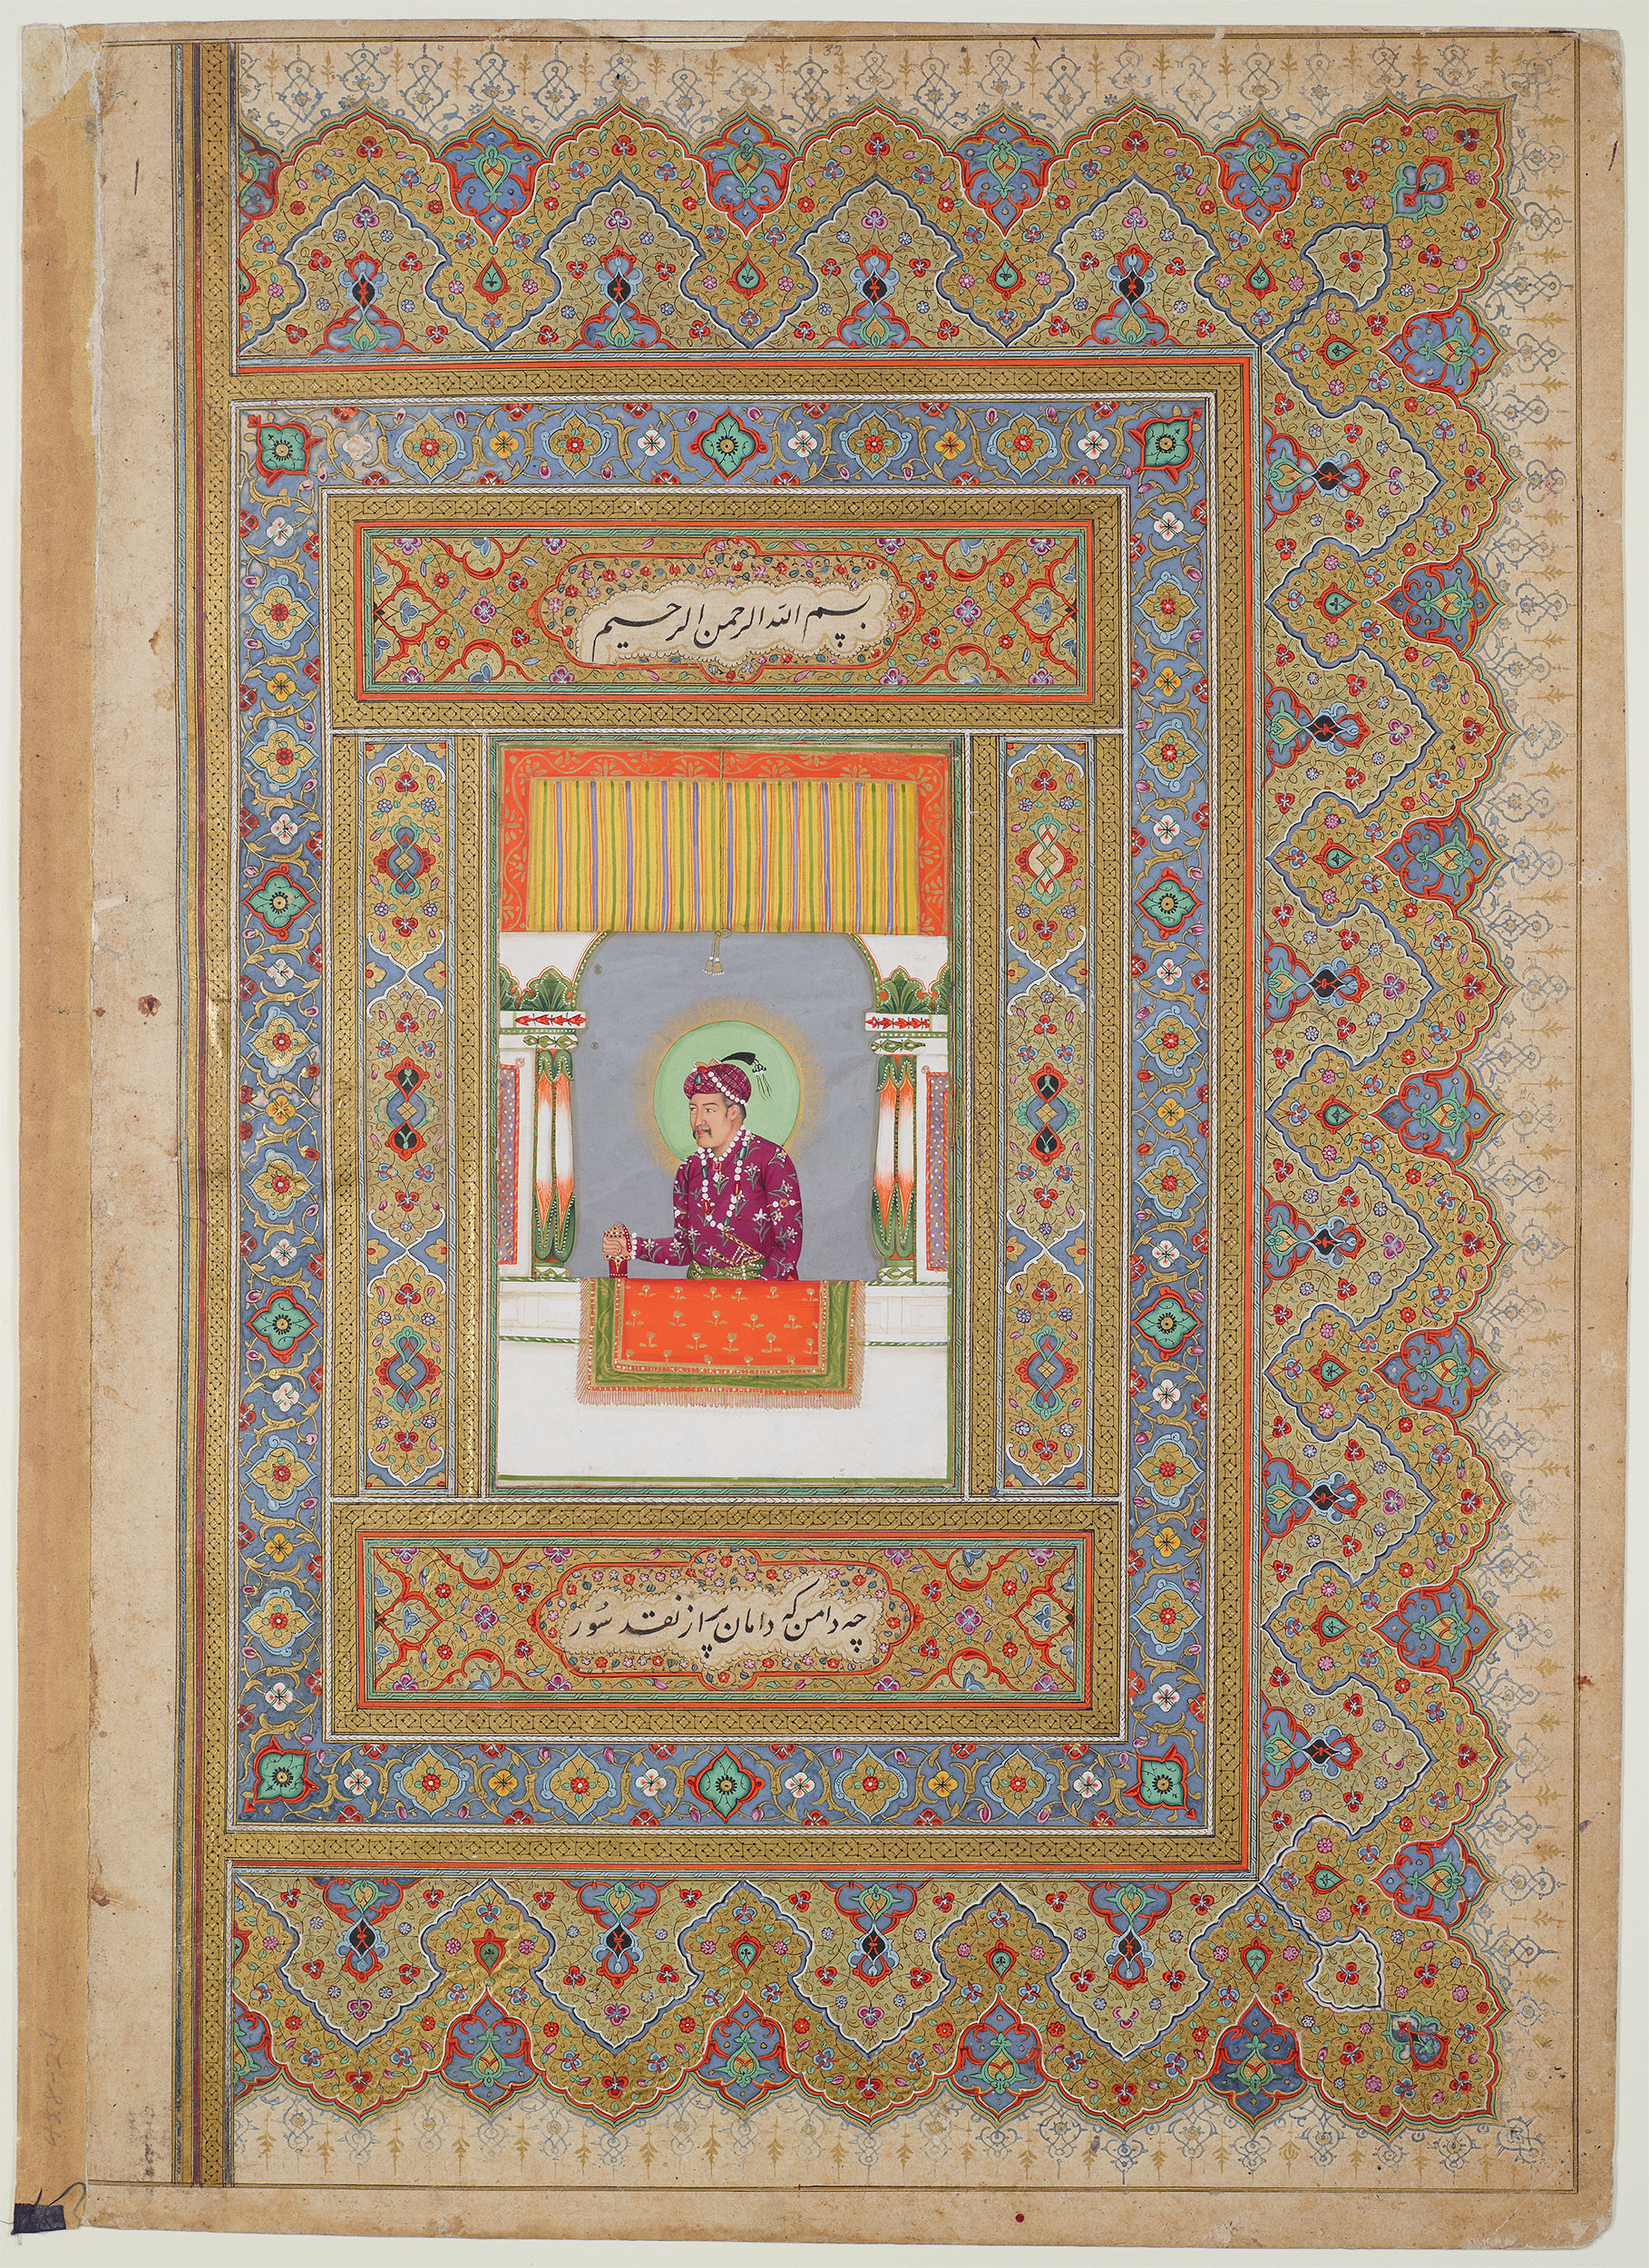 32
بسم الله الرحمن الرحیم
چه دامن که دامان پر از نقد سور